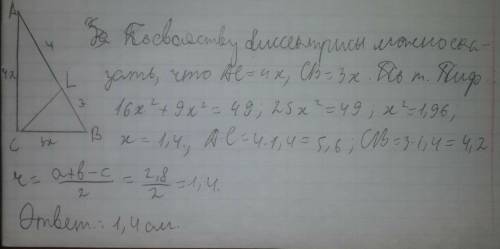 A
4
4x
L
3
C
3x
B
По свойству биссектрисы можно ска-
зать, что AC = 4x, CB = 3x. По т. Пиф
16x² + 9x² = 49; 25x² = 49; x² = 1,96,
x = 1,4, AC = 4·1,4 = 5,6; CB = 3·1,4 = 4,2
r = (a+b-c)/2 = 2,8/2 = 1,4.
Ответ: 1,4 см.